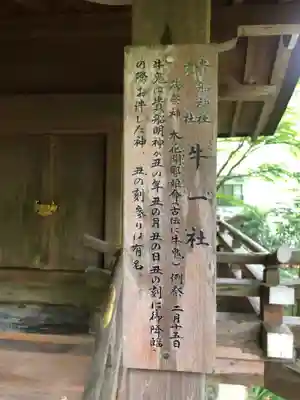 貴船神社
末社
牛一社
御祭神 木花開耶姫命(古伝に牛鬼) 例祭 二月十五日
牛鬼は貴船明神が丑の年丑の月丑の日丑の刻に御降臨
の際お伴した神、 丑の刻参りは有名。